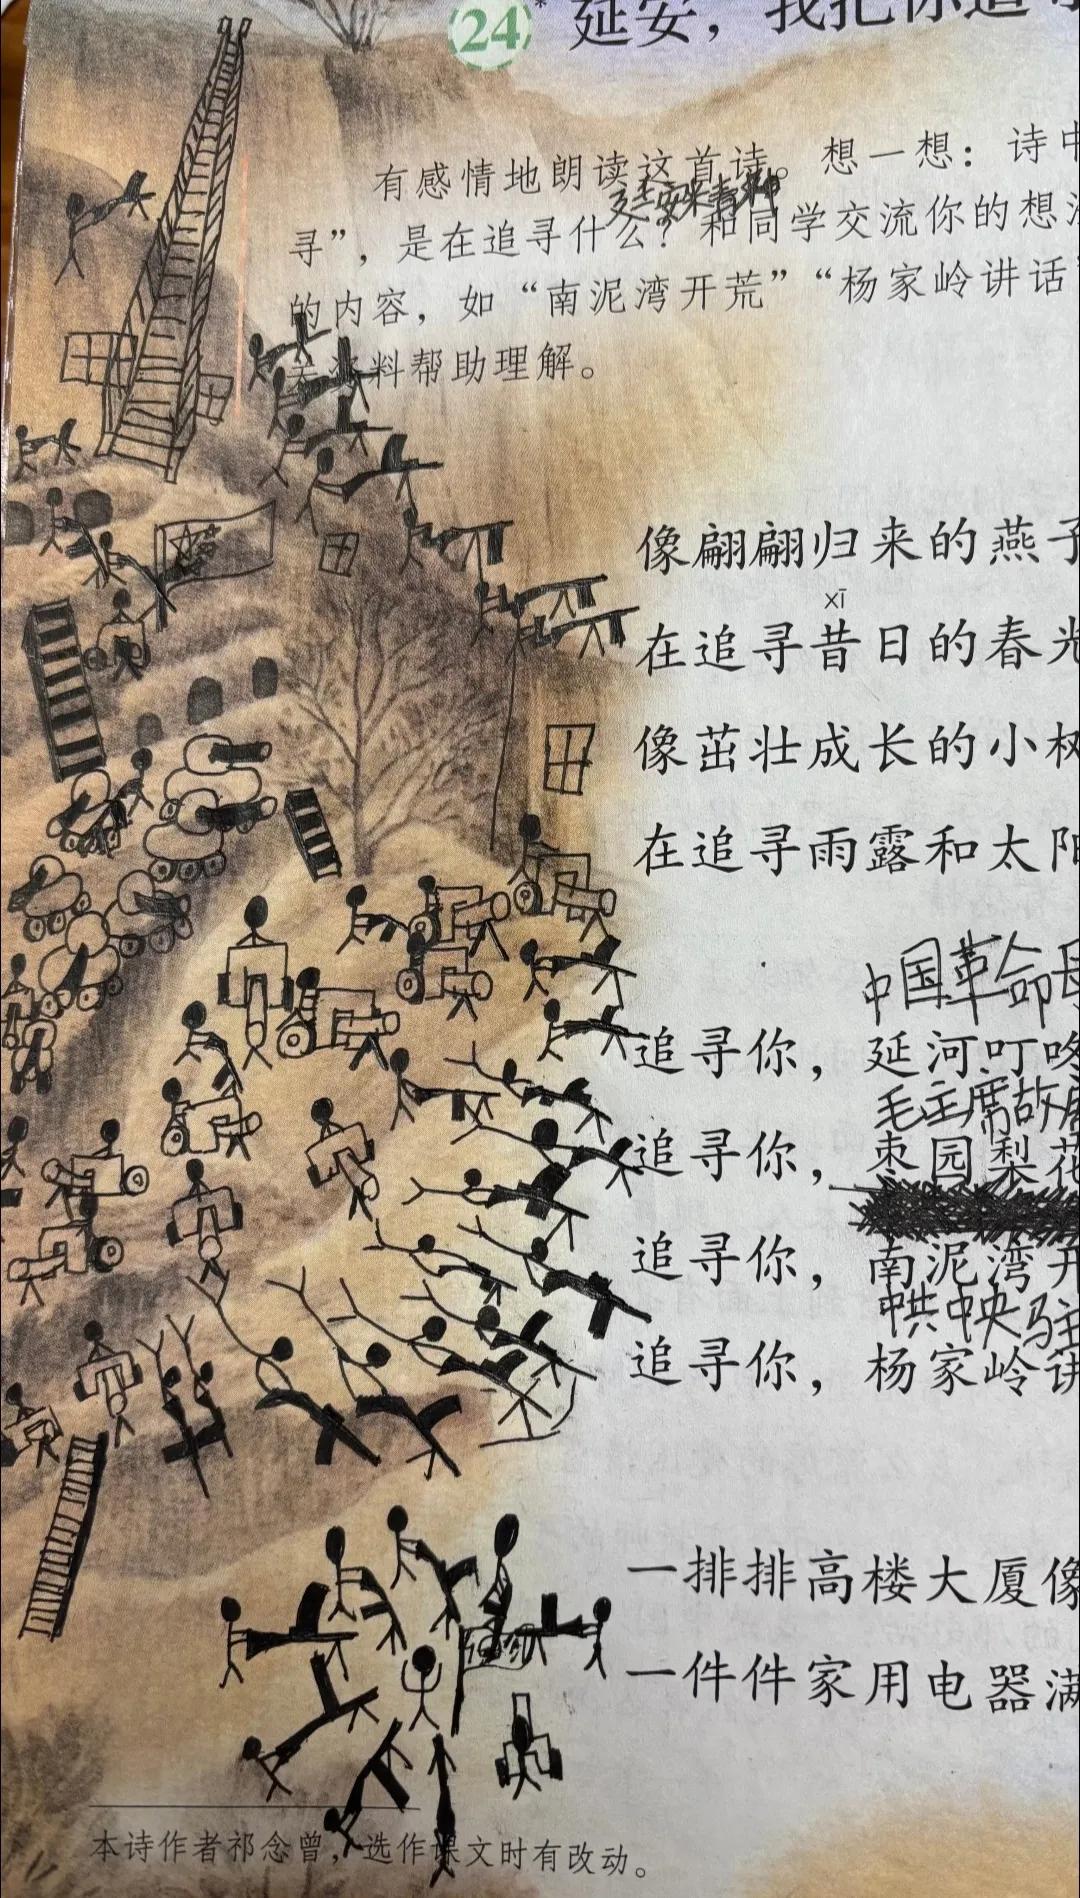 24* 延安，我把你追寻
有感情地朗读这首诗。想一想：诗中
延安精神
寻”，是在追寻什么？和同学交流你的想法
的内容，如“南泥湾开荒”“杨家岭讲话”
关资料帮助理解。
像翩翩归来的燕子
xī
在追寻昔日的春光
像茁壮成长的小树
在追寻雨露和太阳
中国革命母
追寻你，延河叮咚
毛主席故居
追寻你，枣园梨花
追寻你，南泥湾开
中共中央驻
追寻你，杨家岭讲
一排排高楼大厦像
一件件家用电器满
本诗作者祁念曾，选作课文时有改动。